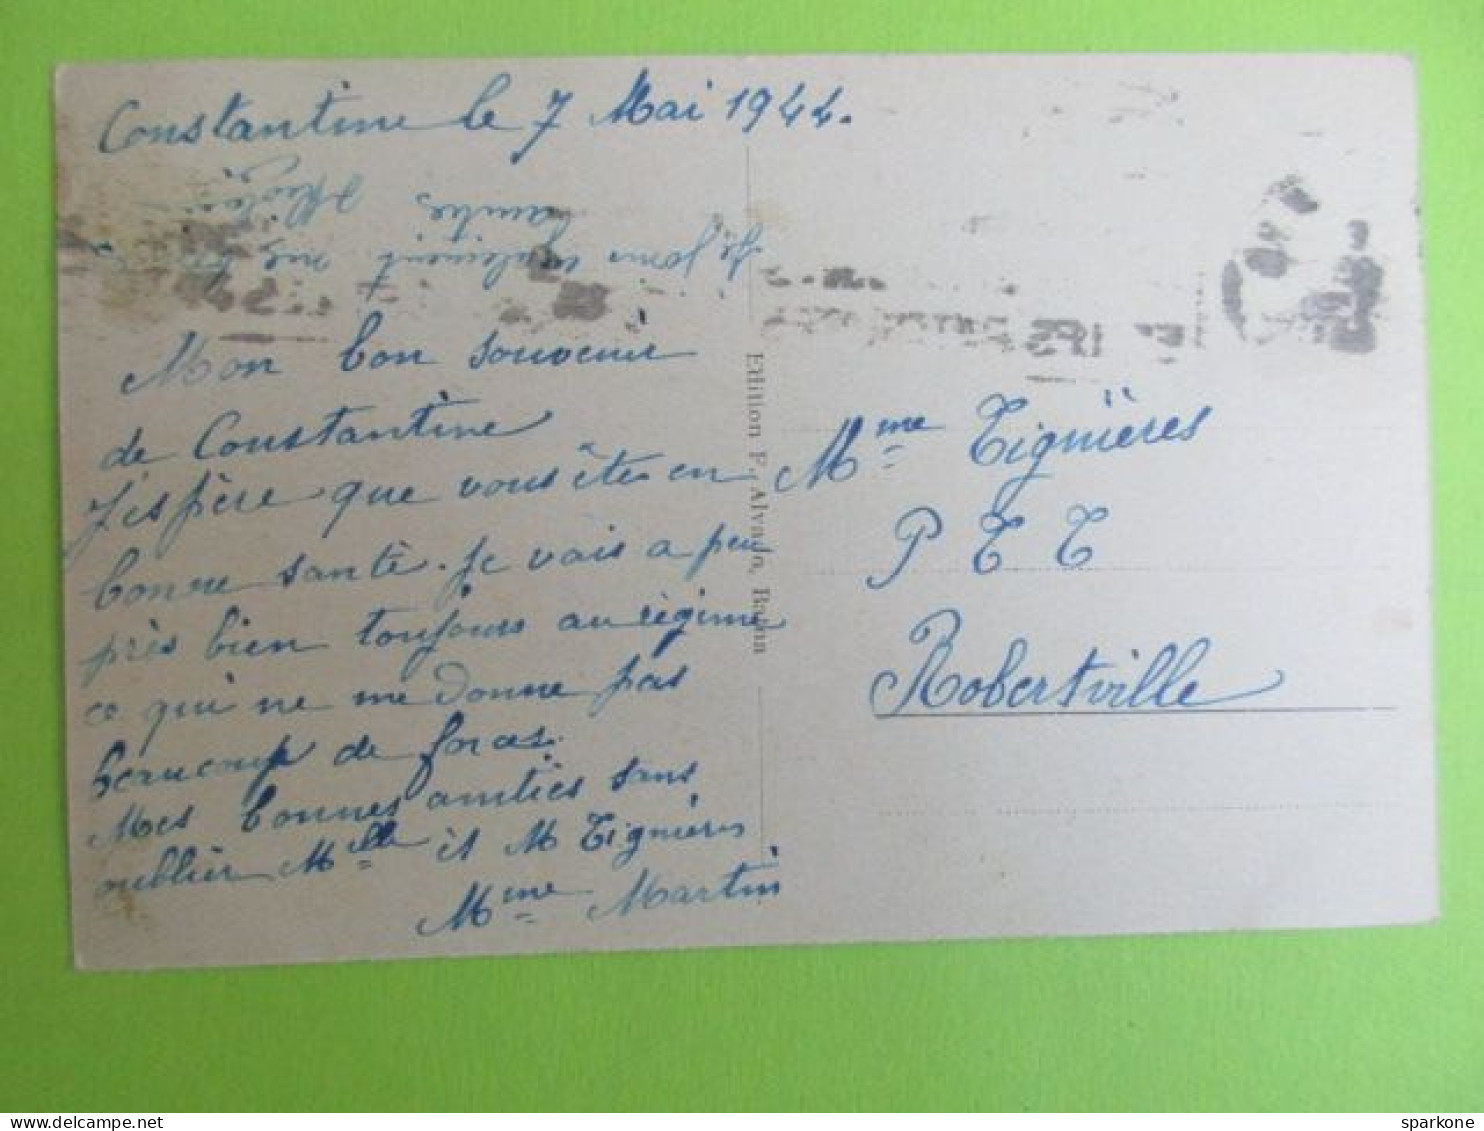 Constantine le 7 Mai 1944.
Je joins également mes
amitiés
Mon bon souvenir
de Constantine
J'espère que vous êtes en
bonne santé. Je vais a peu
près bien toujours au régime
ce qui ne me donne pas
beaucoup de forces.
Mes bonnes amitiés sans
oublier Mlle et M Tignières
Mme Martin
Edition F. Alvado, Batna
Mme Tignières
P T T
Robertville
sparkone